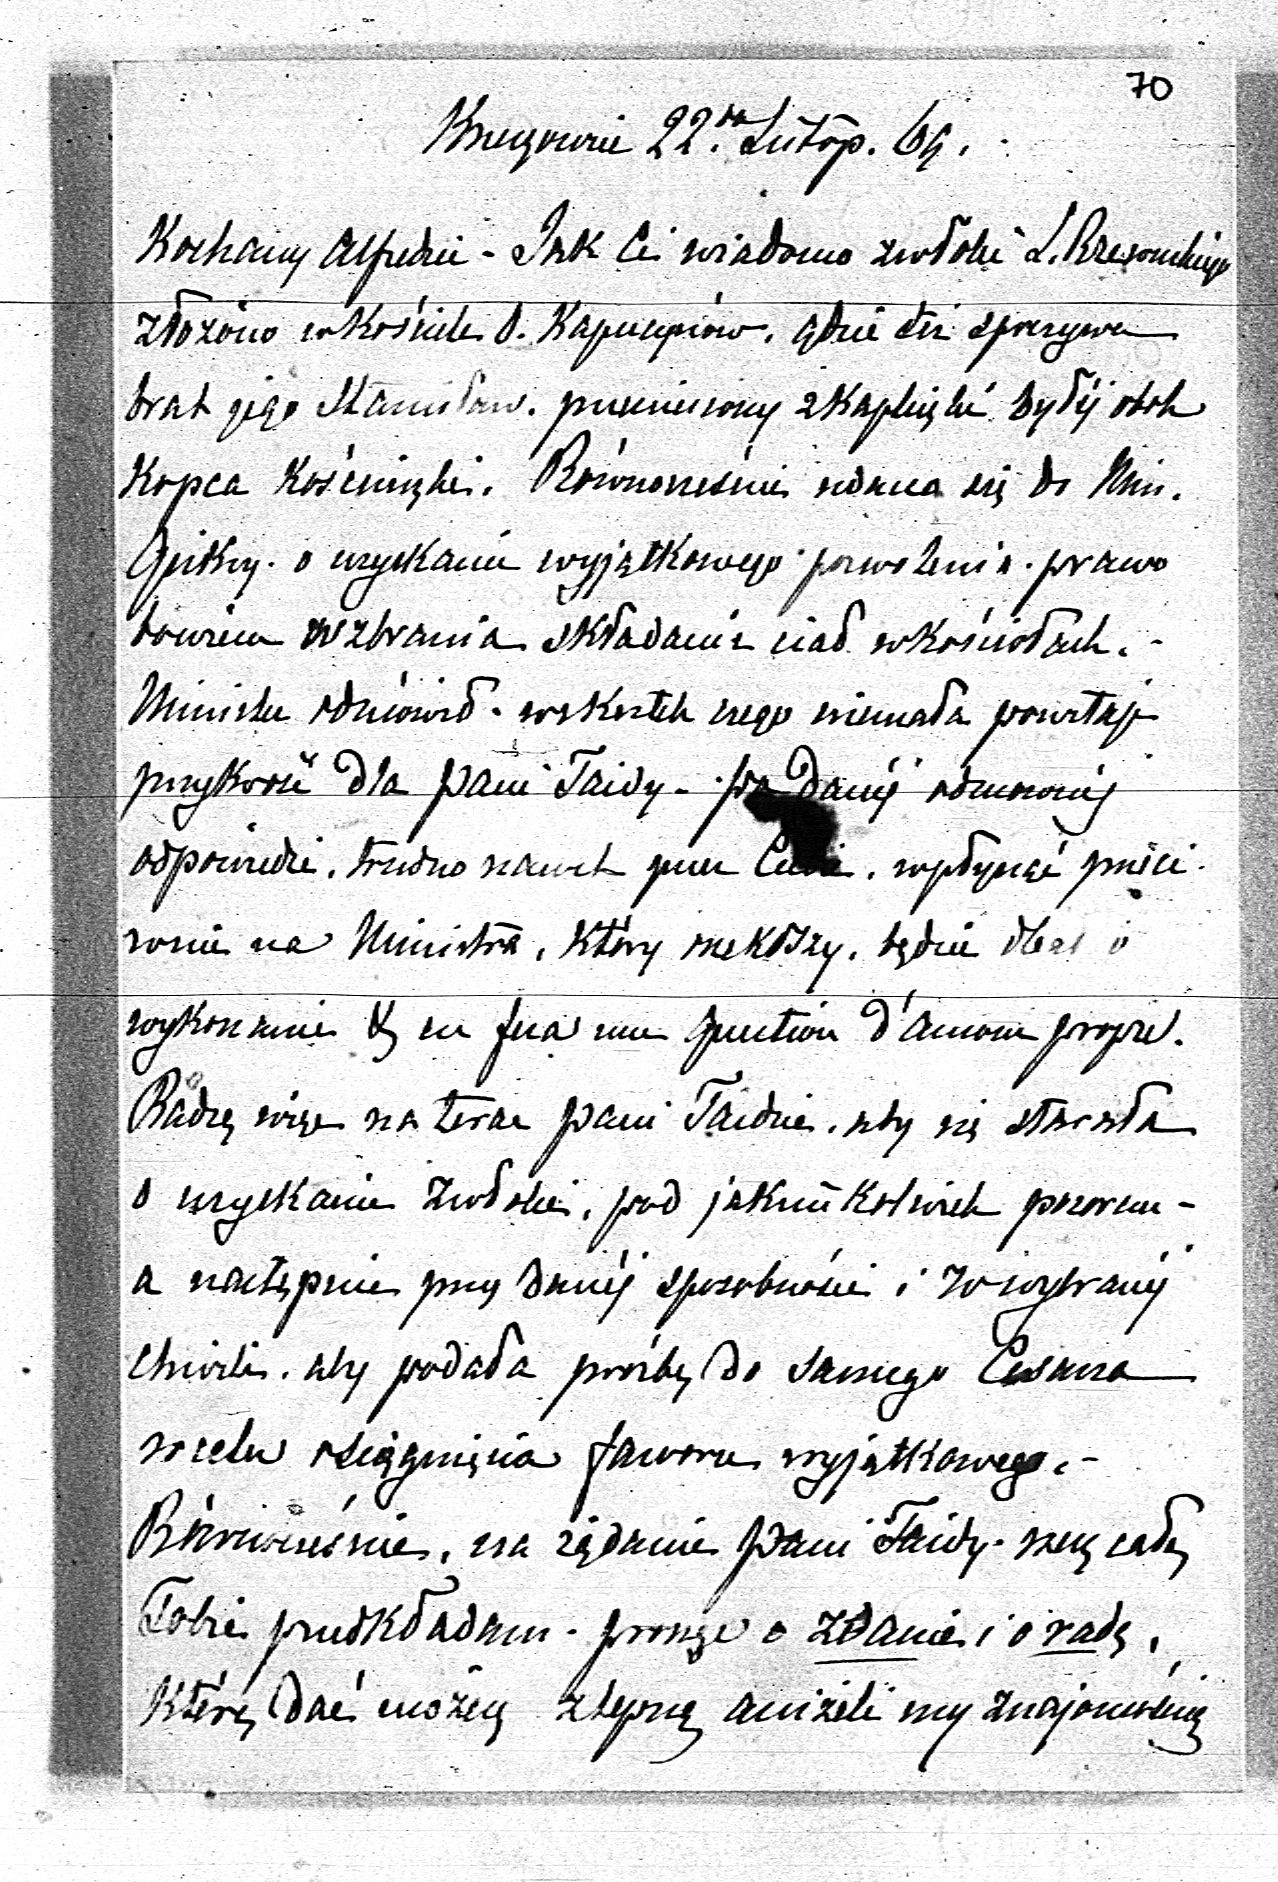 70
Krzeszowice 22. Listop. 69.
Kochany Alfredzie - Jak Ci wiadomo zwłoki L. Rzewuskiego
złożono w kościele O. Kapucynów, gdzie też spoczywa
brat jego Stanisław, przeniesiony z kapliczki byłéj obok
Kopca Kościuszki. Równocześnie udano się do Min.
Giskry o uzyskanie wyjątkowego pozwolenia, prawo
bowiem wzbrania składanie ciał w kościołach. -
Minister odmówił - wskutek czego niemała powstaje
przykrość dla pani Taidy - po danéj odmownéj
odpowiedzi, trudno nawet przez Ciebie, wpłynąć przeci-
wnie na Ministra, który będzie dbał o
wykonanie & en fera une question d'amour propre.
Radzę więc na teraz pani Taidzie, aby się starała
o uzyskanie zwłoki, pod jakimkolwiek pozorem -
a następnie przy danéj sposobności i w wybranéj
chwili, aby podała prośbę do samego Cesarza
w celu osiągnięcia faworu wyjątkowego. -
Równocześnie, na żądanie pani Taidy rzecz całą
Tobie przedkładam - proszę o zdanie i o radę,
którę dać możesz z lepszą aniżeli my znajomością